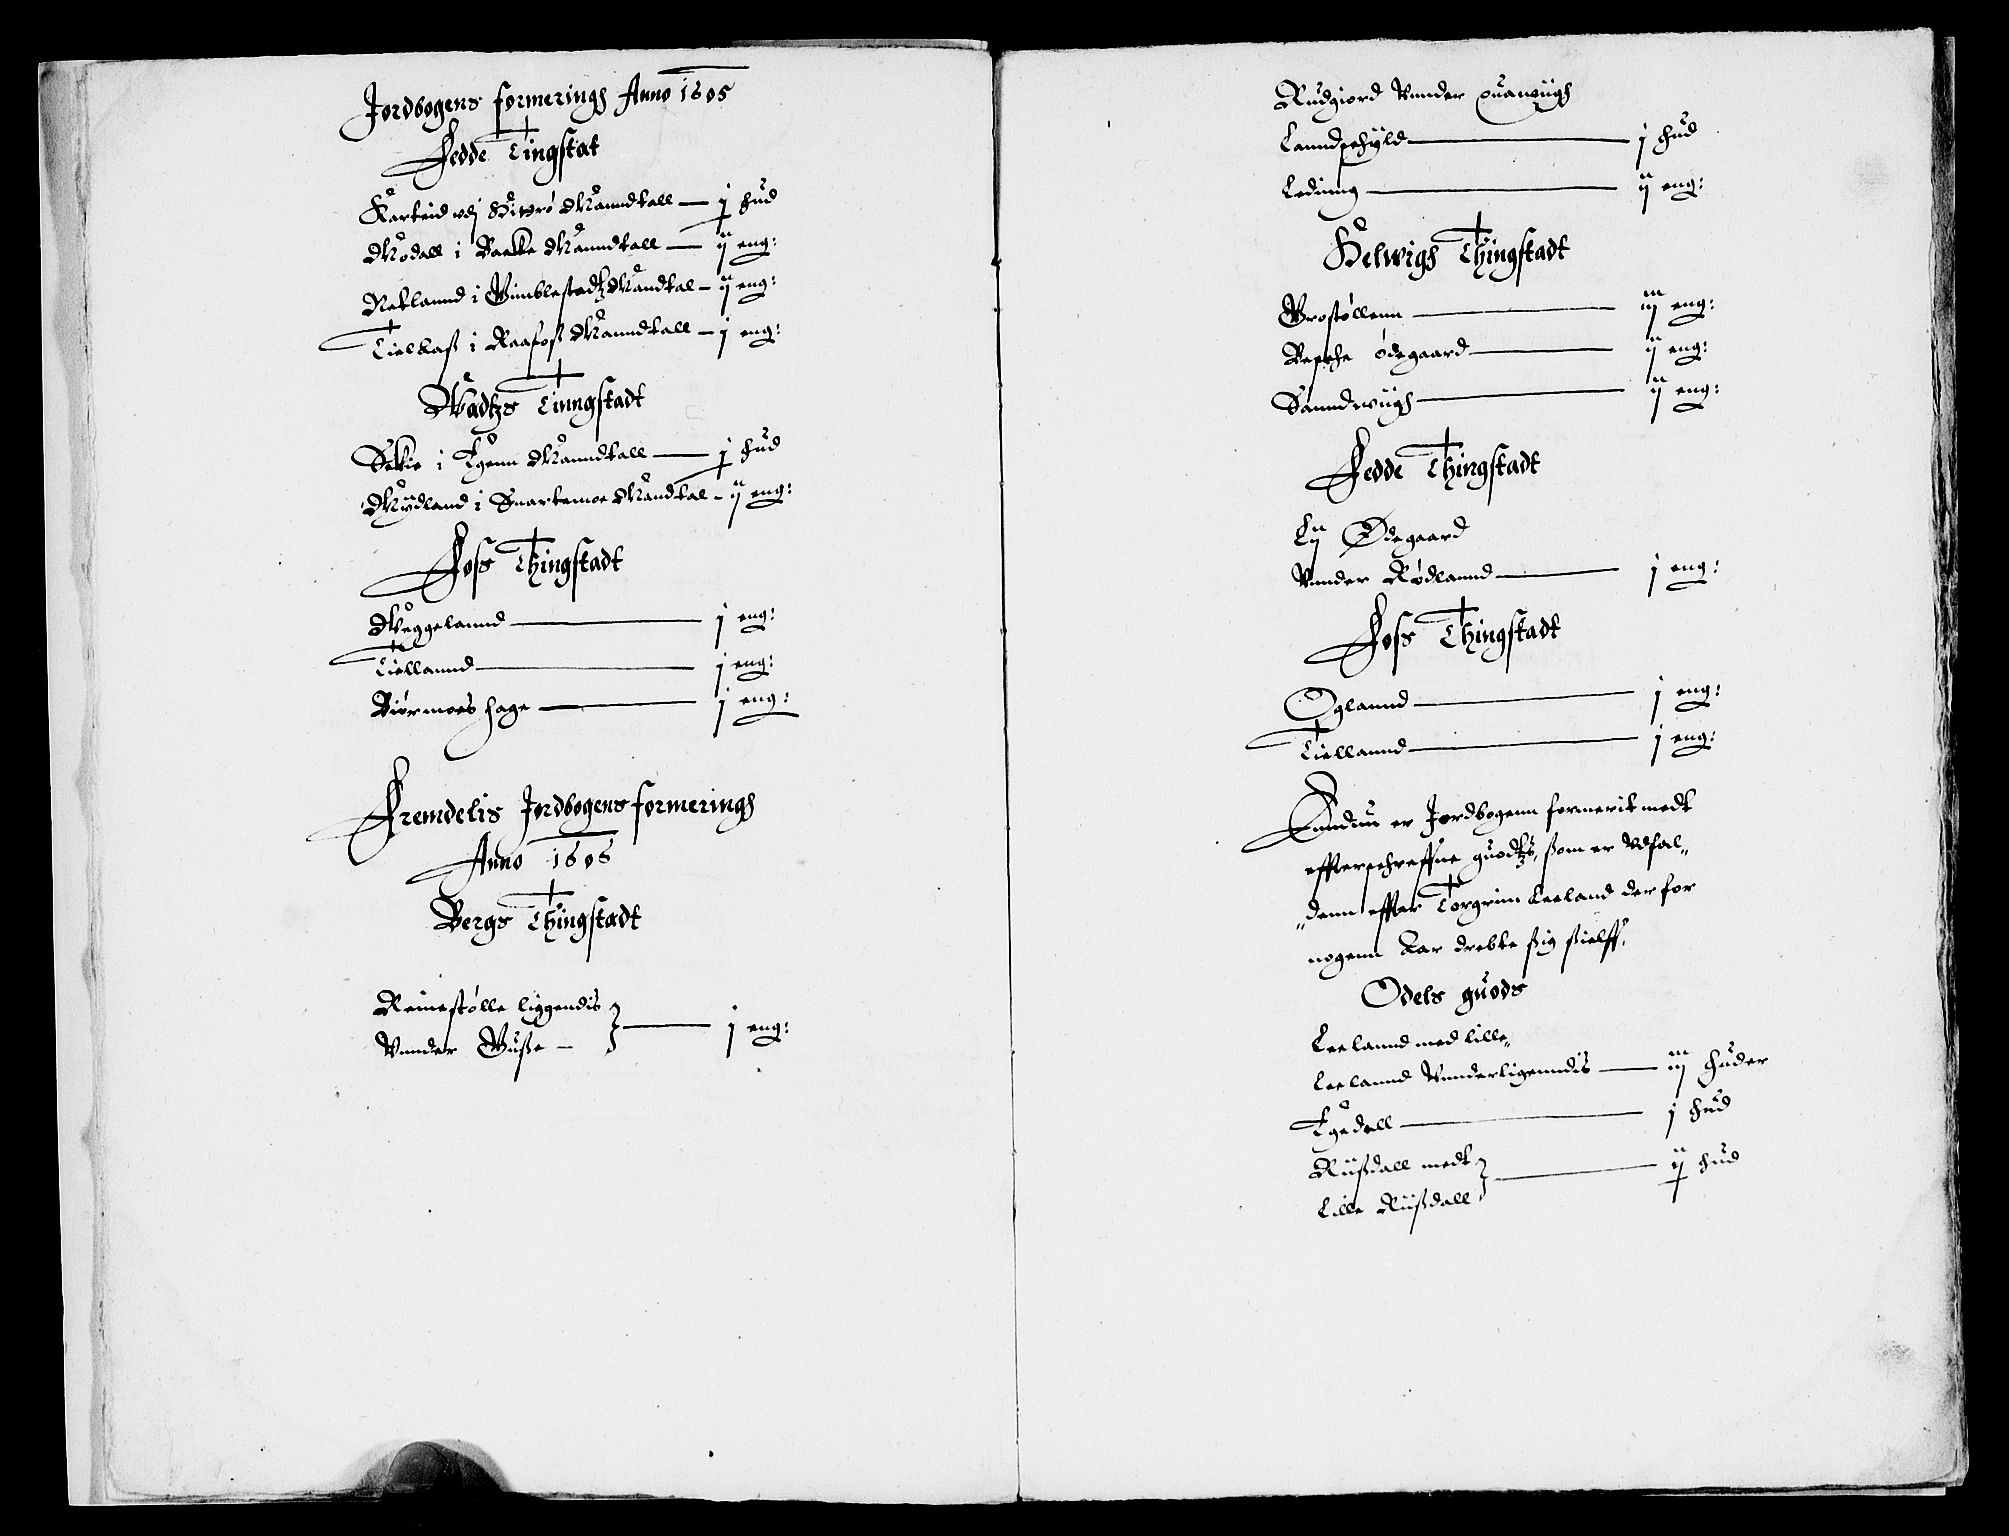 Jordbogens formerings Anno 1605
Fedde Tingstat
Karteid vdj Hitterø Manndtall — j hud
Modall i Backe Manndtall — ij eng:
Netlannd i Gimblestadtz Mandtal — ij eng:
Tiellaß i Raafoß Manndtall — j eng:
Wadtzs Tinngstadt
Sellie i Egenn Manndtall — j hud
Mydland i Snartemoe Mandtal — ij eng:
Foss Thingstadt
Meggelannd — j eng:
Tiellannd — j eng:
Biørmoes hage — j eng:
Fremdelis Jordbogens formerings
Anno 1606
Bergs Thingstadt
Reinestølle liggendis
Vunder Guße — j eng:
Rudgiord Vunder quanuigh
Lanndschyld — j hud
Leding — ij eng:
Helwigs Thingstadt
Brostøllenn — iij eng:
Besche ødegaard — ij eng:
Sanndwiigh — ij eng:
Fedde Thingstadt
Lij Ødegaard
Vunder Rødlannd — j eng:
Foss Thingstadt
Oglannd — j eng:
Tiellannd — j eng:
Endnu er Jordbogenn formerit medt
effterschreffne guodtzs, som er Udfal„
„denn effter Torgrim Leeland der for
nogenn Aar drebte sig sielff,
Odels guods
Leelannd med lille„
Leelannd Vnnderligenndis — iij huder
Egedall — j hud
Riißdall medt
Lille Riißdall — ij hud